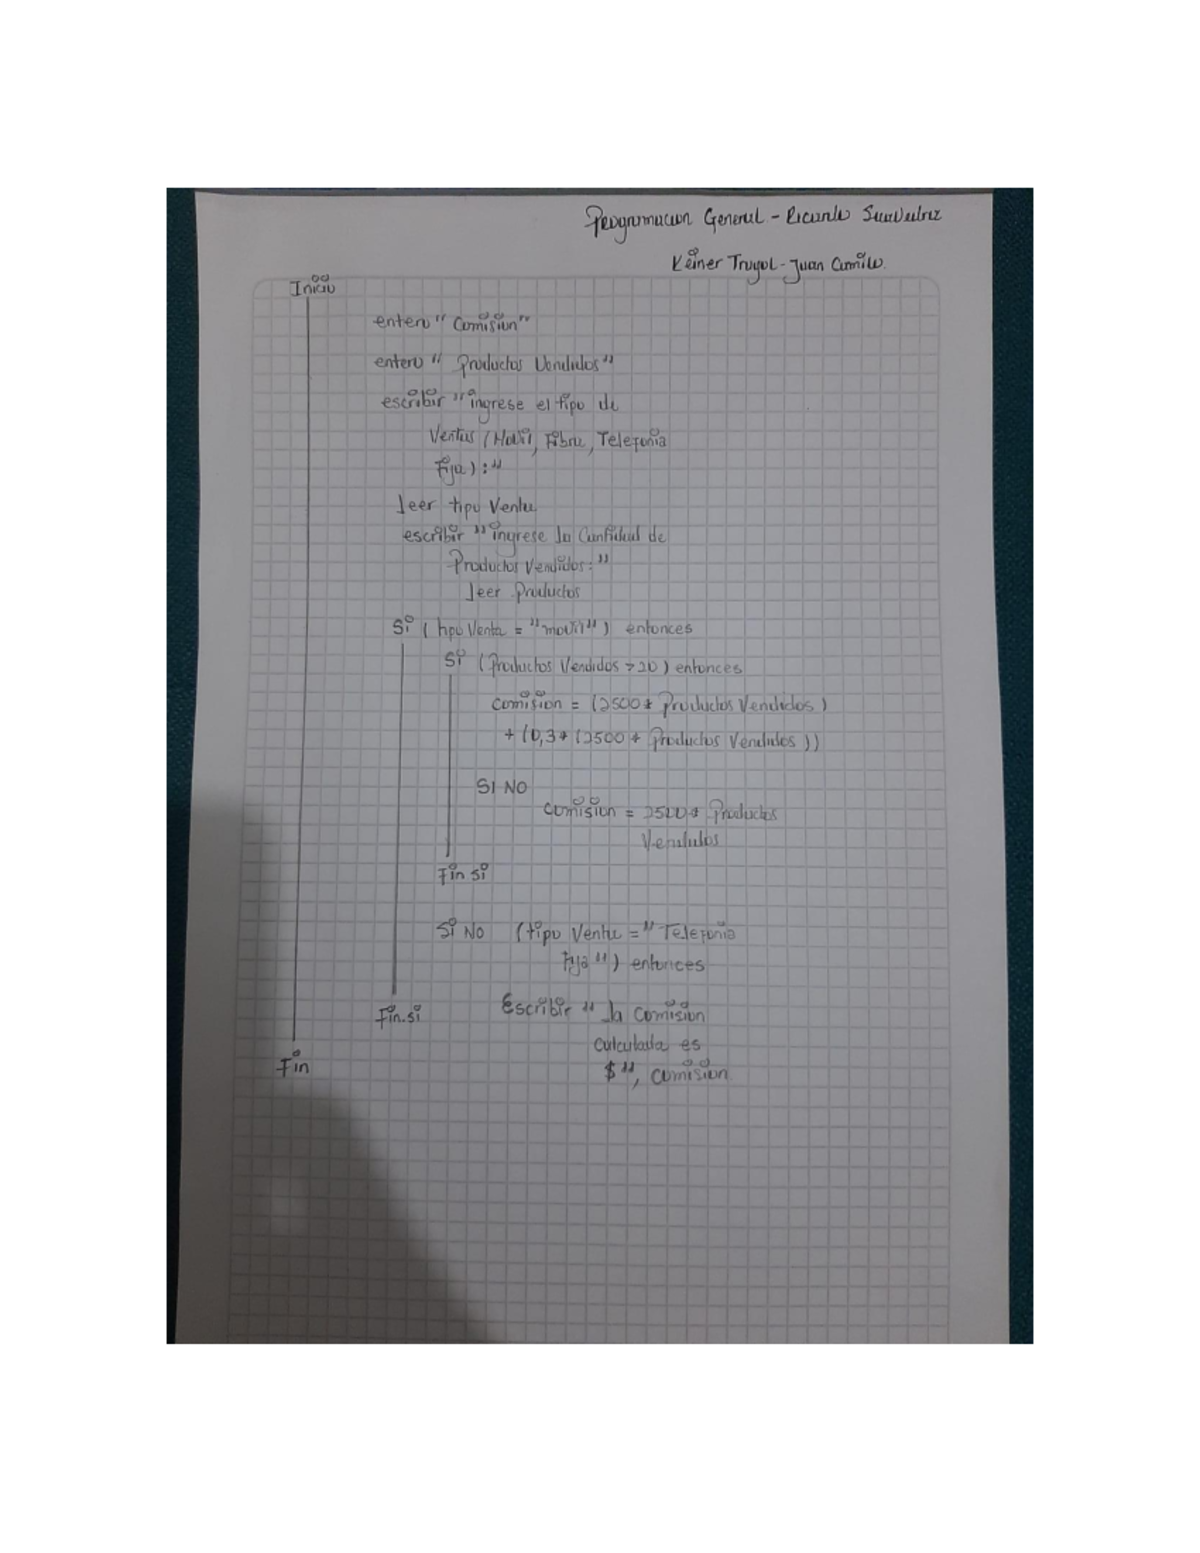 Programacion General - Ricardo
Keiner Truyol - Juan Camilo.
Inicio
entero " Comision"
entero " Productos Vendidos"
escribir "ingrese el tipo de
Ventas (Movil, Fibra, Telefonia
Fija) :"
leer tipo Venta
escribir "ingrese la Cantidad de
Productos Vendidos: "
leer Productos
Si ( tipo Venta = "movil" ) entonces
Si (Productos Vendidos > 20 ) entonces
comision = (2500 * Productos Vendidos )
+ (0,3 * (2500 * Productos Vendidos ))
SI NO
comision = 2500 * Productos
Vendidos
Fin si
Si NO (tipo Venta = " Telefonia
Fija ") entonces
Fin.si Escribir " la comision
calculada es
$ ", comision.
Fin